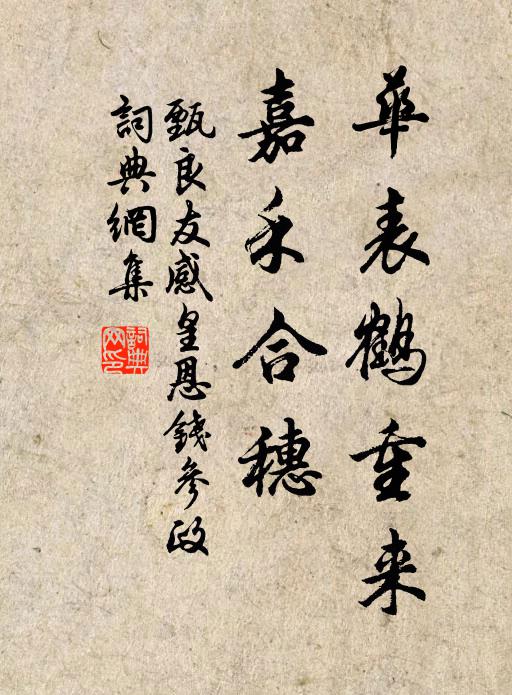 華表鶴重来
嘉禾合穗
甄良友感皇恩錢參政
詞典網集
詞典網印